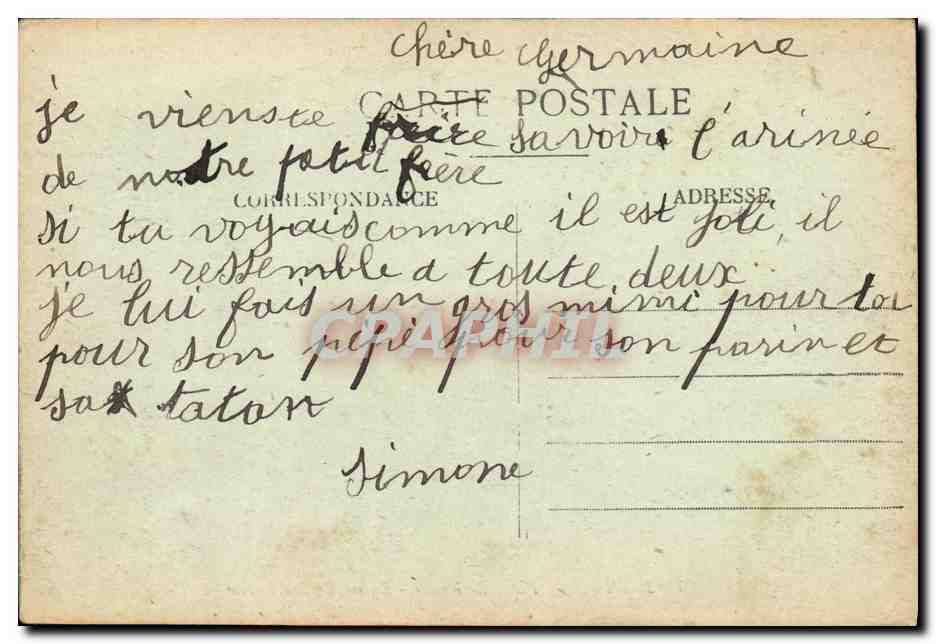 chère Germaine
CARTE POSTALE
je viens te faire savoir l'arinée
de notre petit frère
CORRESPONDANCE
ADRESSE
si tu voyais comme il est joli, il
nous ressemble a toute deux
je lui fais un gros mimi pour toi
CPAPHIL
pour son pépé pour son parin et
sa taton
simone